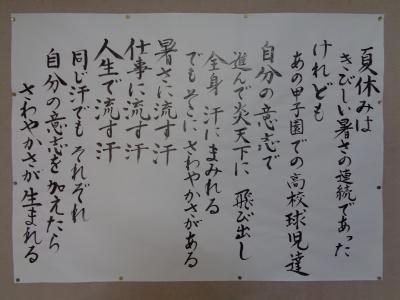 夏休みは
きびしい暑さの連続であった
けれども
あの甲子園での高校球児達
自分の意志で
進んで炎天下に 飛び出し
全身 汗にまみれる
でもそこに さわやかさがある
暑さに流す汗
仕事に流す汗
人生で流す汗
同じ汗でも それぞれ
自分の意志を加えたら
さわやかさが生まれる